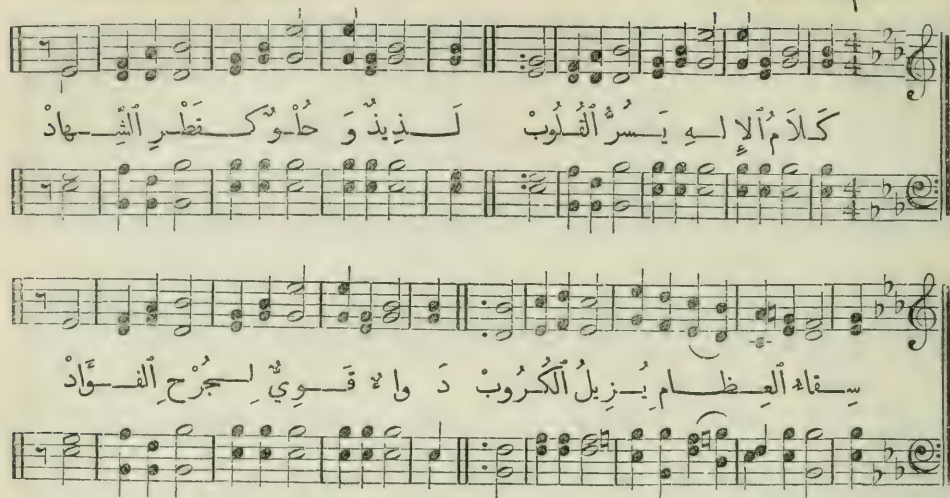 كَلَامُ ٱلْإِلٰهِ يَسُرُّ ٱلْقُلُوبْ لَذِيذٌ وَ حُلْوٌ كَقَطْرِ ٱلشِّهَادْ
سِقَاءُ ٱلْعِظَامِ يُزِيلُ ٱلْكُرُوبْ دَوَاءٌ قَوِيٌّ لِجُرْحِ ٱلْفُؤَادْ